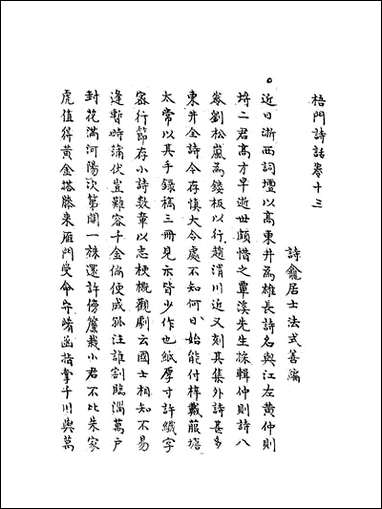 梧門詩話卷十三
詩龕居士法式善編
近日浙西詞壇以高東井為雄長詩名與江左黃仲則
埒二君高才早逝世頗惜之覃溪先生採輯仲則詩八
卷劉松嵐為鏤板以行趙渭川近又刻其集外詩甚多
東井全詩令存慎大令處不知何日始能付梓戴菔塘
太常以其手錄稿三冊見示皆少作也紙厚寸許織字
密行節存小詩數章以志梗概觀劇云國士相知不易
逢暫時蒲伏豈難容千金倘使成孤注誰割臨淄萬戶
封花滿河陽次第開一株還許傍簾栽小君不比朱家
虎值得黃金搭膝來雁門受命守崤函指掌千川與萬